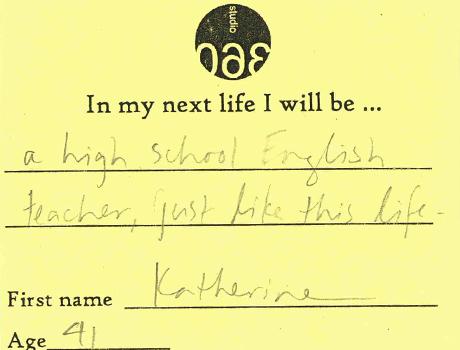 studio
360
In my next life I will be ...
a high school English
teacher, just like this life-
First name Katherine
Age 41